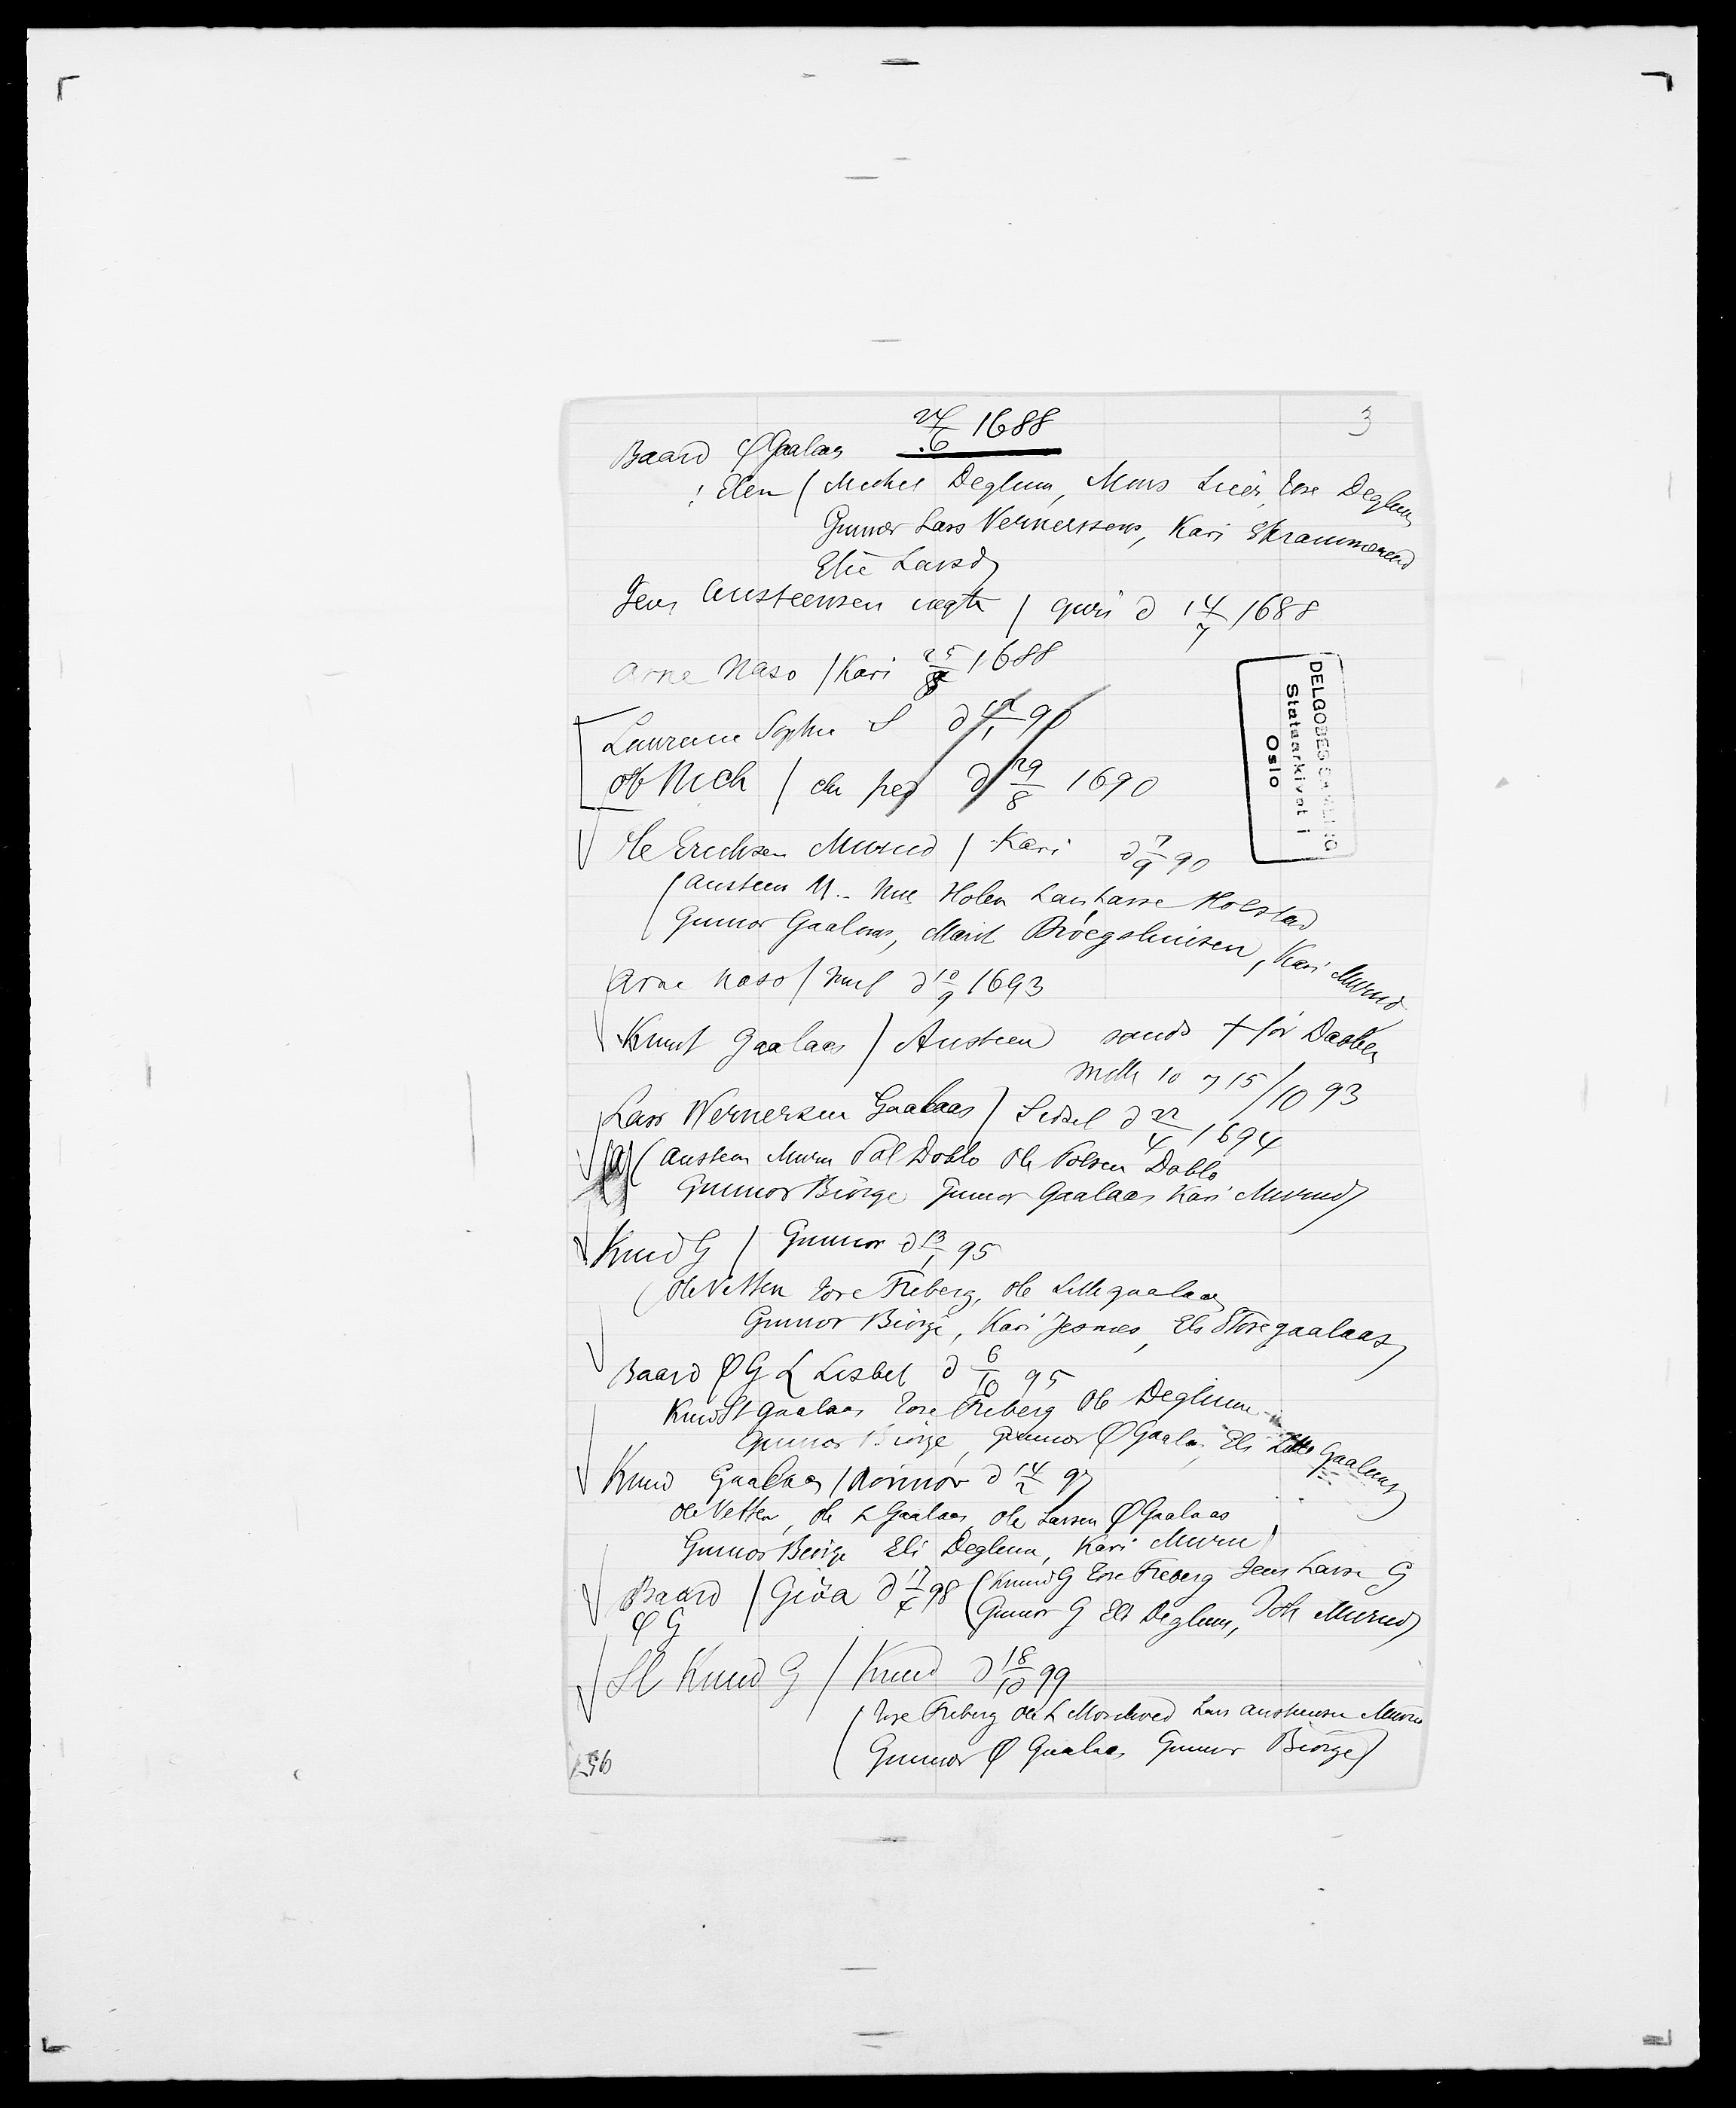 3
24/6 1688
Baard Ø Gaalaas
: Elen ( Michel Deglum, Mons Lier, Tore Deglum
Gunnor Lars Vernerssens, Kari Skrammerud
Elie Larsd)
Jens Austeensen / guri d 14/7 1688
Arne Naso / Kari 25/8 1688
Laurence Sophie S d 19/1 90
Ole Nich / ch ped d 29/8 1690
Ole Erichsen Murud / Kari d 7/9 90
( Austeen M Holen Lars Larsse Holstad
Gunnor Gaalaas, Marit Kari Murud
Arne Naso / d 10/9 1693
Knut Gaalaas / Austeen † før Daaben
mell 10 og 15/10 93
Lars Wernersen Gaalaas / Sidsel d 22/4 1694
( Austeen Muru Pal Doblo Ole Polsen Doblo
Gunnor Biørge Gunnor Gaalaas Kari Murud)
Knud G / Gunnor d 13/1 95
( Ole Vetten Tore Freberg, Ole Lille gaalaas
Gunnor Biørge, Kari Jesnes, Eli Store gaalaas)
Baard Ø G L Lisbet d 6/10 95
Knud St Gaalaas Tore Freberg Ole Deglum
Gunnor Biørge, Gunnor Ø Gaala, Eli Lille Gaalaas)
Knud Gaalaas / d 14/2 97
Ole Vetten, Ole L Gaalaas, Ole Larsen Ø Gaalaas
Gunnor Biørge Eli Deglum, Kari Muru)
Baard / Giøa d 17/4 98 ( Knud G Tore Freberg Jens Larsen G
Ø G Gunnor G Eli Deglum, Murud)
St Knud G / Knud d 18/10 99
( Tore Freberg Ole L Lars Austeensen Muru
Gunnor Ø Gaalaas Gunnor Biørge)
DELGOBES SAMLING
Statsarkivet i
Oslo